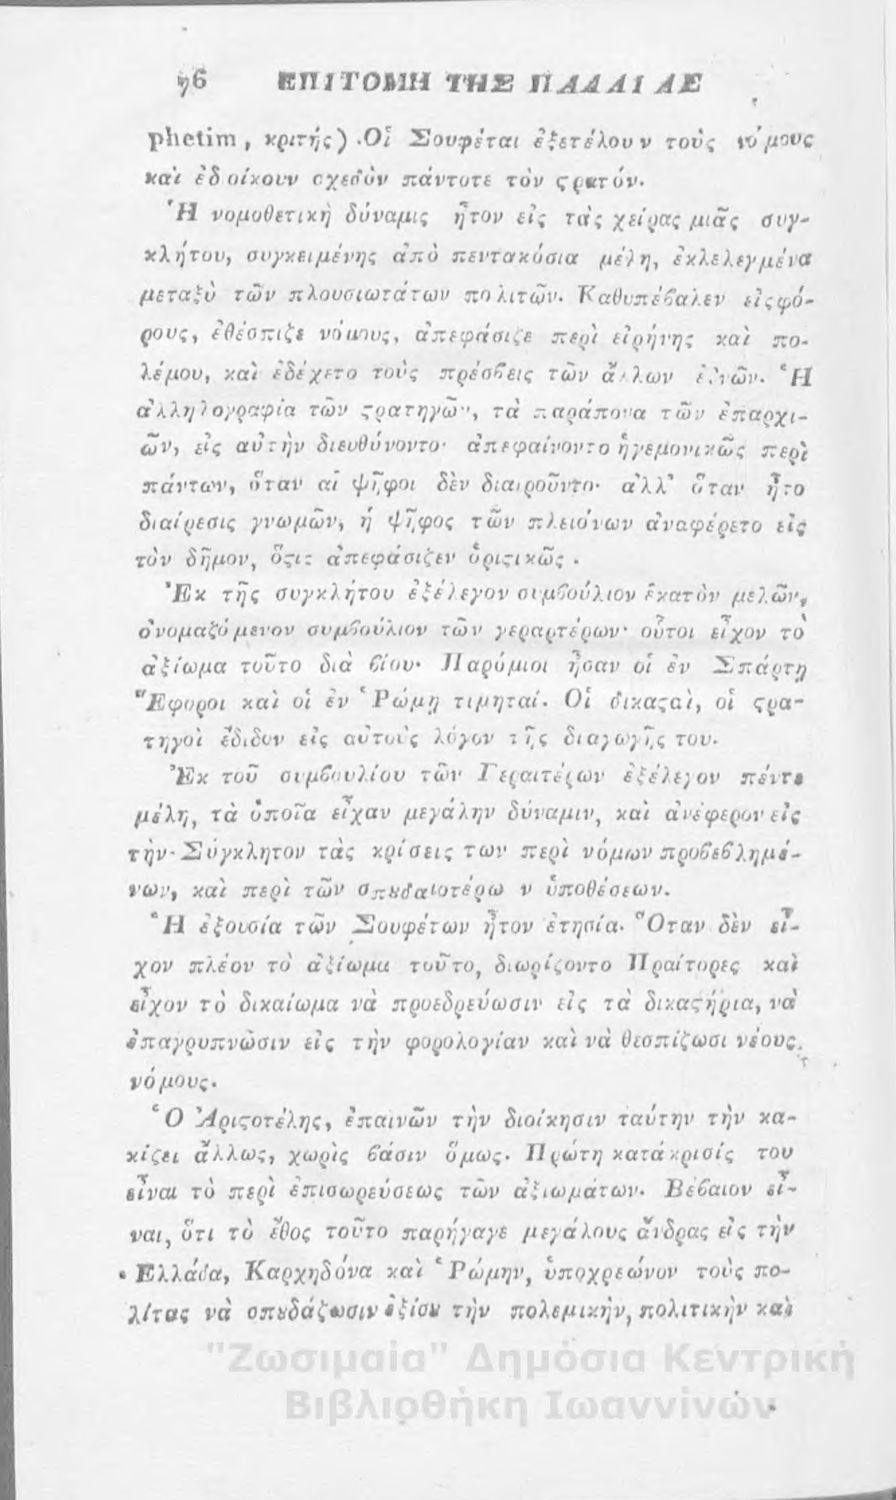 76 ΕΠΙΤΟΜΗ ΤΗΣ ΠΑΛΑΙΑΣ
phetim, κριτής). Οἱ Σουφέται ἐξετέλουν τοὺς νόμους
καὶ ἐδοίκουν σχεδὸν πάντοτε τὸν ϛρατόν.
Ἡ νομοθετικὴ δύναμις ἦτον εἰς τὰς χεῖρας μιᾶς συγ-
κλήτου, συγκειμένης ἀπὸ πεντακόσια μέλη, ἐκλελεγμένα
μεταξὺ τῶν πλουσιωτάτων πολιτῶν. Καθυπέβαλεν εἰσφό-
ρους, ἐθέσπιζε νόμους, ἀπεφάσιζε περὶ εἰρήνης καὶ πο-
λέμου, καὶ ἐδέχετο τοὺς πρέσβεις τῶν ἄλλων ἐθνῶν. Ἡ
ἀλληλογραφία τῶν ϛρατηγῶν, τὰ παράπονα τῶν ἐπαρχι-
ῶν, εἰς αὐτὴν διευθύνοντο· ἀπεφαίνοντο ἡγεμονικῶς περὶ
πάντων, ὅταν αἱ ψῆφοι δὲν διαιροῦντο· ἀλλ' ὅταν ἦτο
διαίρεσις γνωμῶν, ἡ ψῆφος τῶν πλειόνων ἀναφέρετο εἰς
τὸν δῆμον, ὅϛις ἀπεφάσιζεν ὁριϛικῶς.
Ἐκ τῆς συγκλήτου ἐξέλεγον συμβούλιον ἑκατὸν μελῶν,
ὀνομαζόμενον συμβούλιον τῶν γεραρτέρων· οὗτοι εἶχον τὸ
ἀξίωμα τοῦτο διὰ βίου· Παρόμιοι ἦσαν οἱ ἐν Σπάρτῃ
Ἔφοροι καὶ οἱ ἐν Ῥώμῃ τιμηταί. Οἱ δικαϛαὶ, οἱ ϛρα-
τηγοὶ ἔδιδον εἰς αὐτοὺς λόγον τῆς διαγωγῆς του.
Ἐκ τοῦ συμβουλίου τῶν Γεραιτέρων ἐξέλεγον πέντε
μέλη, τὰ ὁποῖα εἶχαν μεγάλην δύναμιν, καὶ ἀνέφερον εἰς
τὴν Σύγκλητον τὰς κρίσεις των περὶ νόμων προβεβλημέ-
νων, καὶ περὶ τῶν σπȣδαιοτέρων ὑποθέσεων.
Ἡ ἐξουσία τῶν Σουφέτων ἦτον ἐτησία. Ὅταν δὲν εἶ-
χον πλέον τὸ ἀξίωμα τοῦτο, διωρίζοντο Πραίτορες καὶ
εἶχον τὸ δικαίωμα νὰ προεδρεύωσιν εἰς τὰ δικαϛήρια, νὰ
ἐπαγρυπνῶσιν εἰς τὴν φορολογίαν καὶ νὰ θεσπίζωσι νέους
νόμους.
Ὁ Ἀριϛοτέλης, ἐπαινῶν τὴν διοίκησιν ταύτην τὴν κα-
κίζει ἄλλως, χωρὶς βάσιν ὅμως. Πρώτη κατάκρισίς του
εἶναι τὸ περὶ ἐπισωρεύσεως τῶν ἀξιωμάτων. Βέβαιον εἶ-
ναι, ὅτι τὸ ἔθος τοῦτο παρήγαγε μεγάλους ἄνδρας εἰς τὴν
Ἑλλάδα, Καρχηδόνα καὶ Ῥώμην, ὑποχρεώνον τοὺς πο-
λίτας νὰ σπȣδάζωσιν ἐξίσȣ τὴν πολεμικὴν, πολιτικὴν καὶ
"Ζωσιμαία" Δημόσια Κεντρική
Βιβλιοθήκη Ιωαννίνων